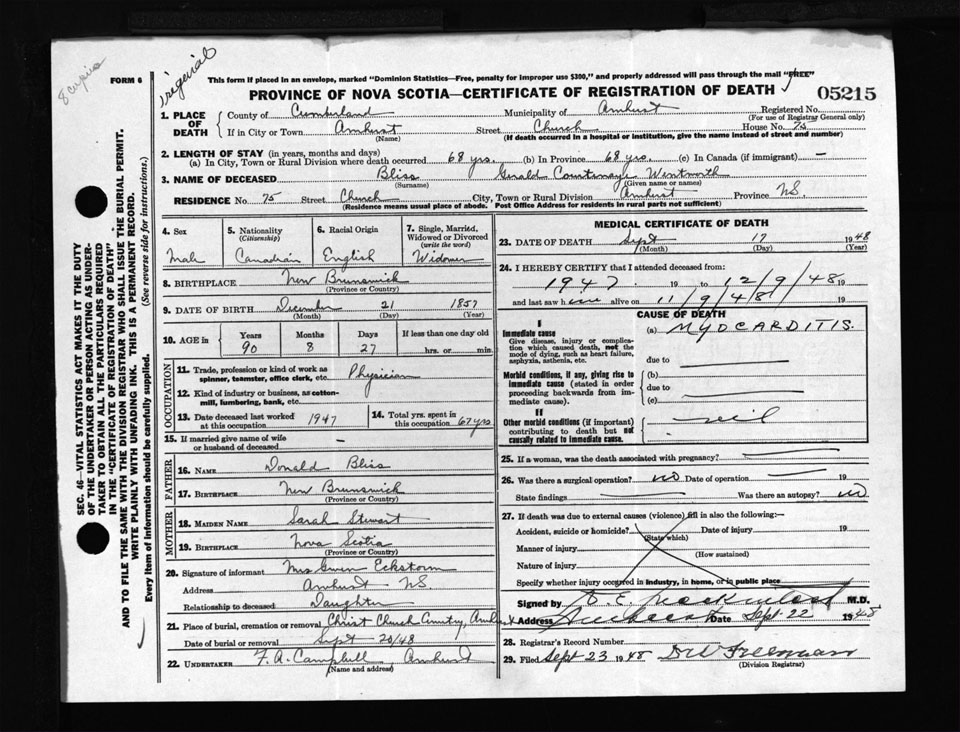 8 copies
original
FORM 6
This form if placed in an envelope, marked "Dominion Statistics—Free, penalty for improper use $300," and properly addressed will pass through the mail "FREE"
PROVINCE OF NOVA SCOTIA—CERTIFICATE OF REGISTRATION OF DEATH
05215
1. PLACE OF DEATH
County of Cumberland Municipality of Amherst Registered No.
(For use of Registrar General only)
If in City or Town Amherst Street Church House No. 75
(Name) (If death occurred in a hospital or institution, give the name instead of street and number)
2. LENGTH OF STAY (in years, months and days)
(a) In City, Town or Rural Division where death occurred 68 yrs. (b) In Province 68 yrs. (c) In Canada (if immigrant) —
3. NAME OF DECEASED Bliss Gerald Courtenaye Wentworth
(Surname) (Given name or names)
RESIDENCE No. 75 Street Church City, Town or Rural Division Amherst Province N.S.
(Residence means usual place of abode. Post Office Address for residents in rural parts not sufficient)
4. Sex
Male
5. Nationality
(Citizenship)
Canadian
6. Racial Origin
English
7. Single, Married, Widowed or Divorced
(write the word)
Widower
8. BIRTHPLACE New Brunswick
(Province or Country)
9. DATE OF BIRTH December 21 1857
(Month) (Day) (Year)
10. AGE in Years Months Days If less than one day old
90 8 27 hrs. or min.
OCCUPATION
11. Trade, profession or kind of work as spinner, teamster, office clerk, etc. Physician
12. Kind of industry or business, as cotton-mill, lumbering, bank, etc.
13. Date deceased last worked at this occupation 1947
14. Total yrs. spent in this occupation 67 yrs
15. If married give name of wife or husband of deceased —
FATHER
16. NAME Donald Bliss
17. BIRTHPLACE New Brunswick
(Province or Country)
MOTHER
18. MAIDEN NAME Sarah Stewart
19. BIRTHPLACE Nova Scotia
(Province or Country)
20. Signature of informant Mrs Gwen Eckstorm
Address Amherst N.S.
Relationship to deceased Daughter
21. Place of burial, cremation or removal Christ Church
Date of burial or removal Sept 20/48
22. UNDERTAKER F. A. Campbell Amherst
(Name and address)
MEDICAL CERTIFICATE OF DEATH
23. DATE OF DEATH Sept 17 1948
(Month) (Day) (Year)
24. I HEREBY CERTIFY that I attended deceased from:
1947 19 to 12/9/48 19
and last saw him alive on 11/9/48 19
CAUSE OF DEATH
I
Immediate cause
Give disease, injury or complication which caused death, not the mode of dying, such as heart failure, asphyxia, asthenia, etc.
(a) MYOCARDITIS.
due to
Morbid conditions, if any, giving rise to immediate cause (stated in order proceeding backwards from immediate cause).
(b)
due to
(c)
II
Other morbid conditions (if important) contributing to death but not causally related to immediate cause.
nil
25. If a woman, was the death associated with pregnancy?
26. Was there a surgical operation? no Date of operation 19
State findings Was there an autopsy? no
27. If death was due to external causes (violence) fill in also the following:—
Accident, suicide or homicide? Date of injury 19
(State which)
Manner of injury
(How sustained)
Nature of injury
Specify whether injury occurred in industry, in home, or in public place
Signed by M.D.
Address Amherst Date Sept. 22 1948
28. Registrar's Record Number
29. Filed Sept 23 1948
(Division Registrar)
SEC. 46—VITAL STATISTICS ACT MAKES IT THE DUTY
OF THE UNDERTAKER OR PERSON ACTING AS UNDER-
TAKER TO OBTAIN ALL THE PARTICULARS REQUIRED
IN THE "CERTIFICATE OF REGISTRATION OF DEATH"
AND TO FILE THE SAME WITH THE DIVISION REGISTRAR WHO SHALL ISSUE THE BURIAL PERMIT.
WRITE PLAINLY WITH UNFADING INK. THIS IS A PERMANENT RECORD.
Every item of information should be carefully supplied. (See reverse side for instructions.)